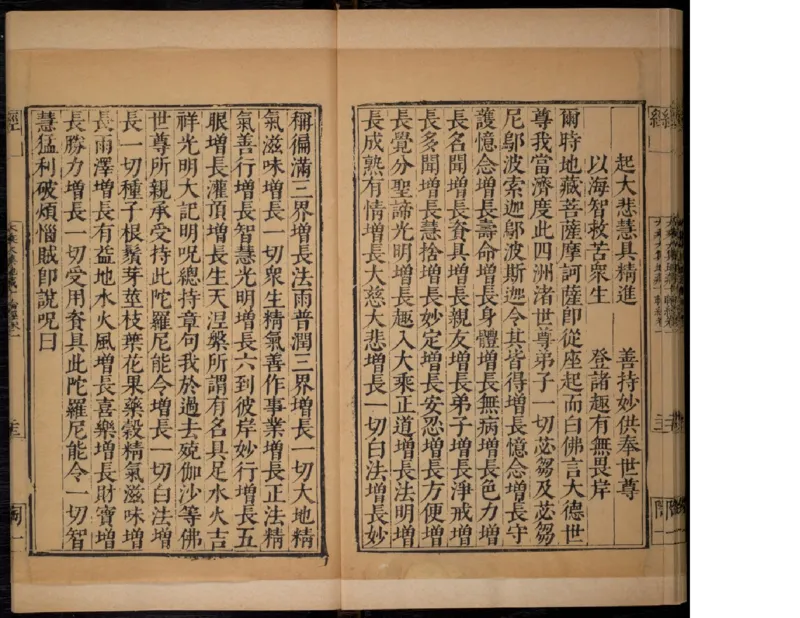 起大悲慧具精進　善持妙供奉世尊
以海智救苦衆生　登諸趣有無畏岸
爾時地藏菩薩摩訶薩即從座起而白佛言大德世
尊我當濟度此四洲渚世尊弟子一切苾芻及苾芻
尼鄔波索迦鄔波斯迦令其皆得增長憶念增長守
護憶念增長壽命增長身體增長無病增長色力增
長名聞增長資具增長親友增長弟子增長淨戒增
長多聞增長慧捨增長妙定增長安忍增長方便增
長覺分聖諦光明增長趣入大乘正道增長法明增
長成熟有情增長大慈大悲增長一切白法增長妙
稱徧滿三界增長法雨普潤三界增長一切大地精
氣滋味增長一切衆生精氣善作事業增長正法精
氣善行增長智慧光明增長六到彼岸妙行增長五
眼增長灌頂增長生天涅槃所謂有名具足水火吉
祥光明大記明呪總持章句我於過去殑伽沙等佛
世尊所親承受持此陀羅尼能令增長一切白法增
長一切種子根鬚芽莖枝葉花果藥穀精氣滋味增
長雨澤增長有益地水火風增長喜樂增長財寶增
長勝力增長一切受用資具此陀羅尼能令一切智
慧猛利破煩惱賊即說呪曰